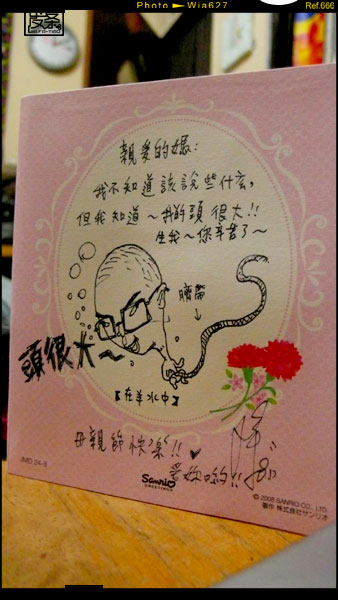 Photo ► Wia627
Ref.666
親愛的媽:
我不知道該說些什么,
但我知道～我的頭很大!!
生我～您辛苦了～
臍帶
頭很大～
【在羊水中】
母親節快樂!! ♥
愛妳喲!!
JMD 24-5
Sanrio
GREETINGS
© 2008 SANRIO CO., LTD.
著作 株式会社サンリオ